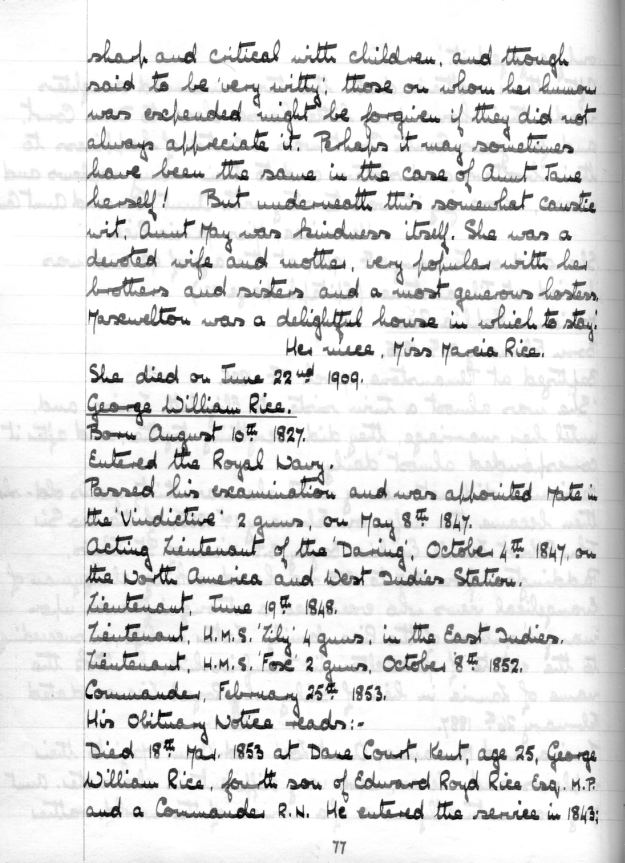 sharp and critical with children, and though
said to be 'very witty', those on whom her humour
was expended might be forgiven if they did not
always appreciate it. Perhaps it may sometimes
have been the same in the case of Aunt Jane
herself! But underneath this somewhat caustic
wit, Aunt May was kindness itself. She was a
devoted wife and mother, very popular with her
brothers and sisters and a most generous hostess,
Maxwelton was a delightful house in which to stay.'
Her niece, Miss Marcia Rice.
She died on June 22nd 1909.
George William Rice.
Born August 10th 1827.
Entered the Royal Navy.
Passed his examination and was appointed Mate in
the 'Vindictive' 2 guns, on May 8th 1847.
Acting Lieutenant of the 'Daring', October 4th 1847, on
the North America and West Indies Station.
Lieutenant, June 19th 1848.
Lieutenant, H.M.S. 'Lily' 4 guns, in the East Indies.
Lieutenant, H.M.S. 'Fox' 2 guns, October 8th 1852.
Commander, February 25th 1853.
His Obituary Notice reads:-
Died 18th Mar. 1853 at Dane Court, Kent, age 25, George
William Rice, fourth son of Edward Royd Rice Esq. M.P.
and a Commander R.N. He entered the service in 1843;
77